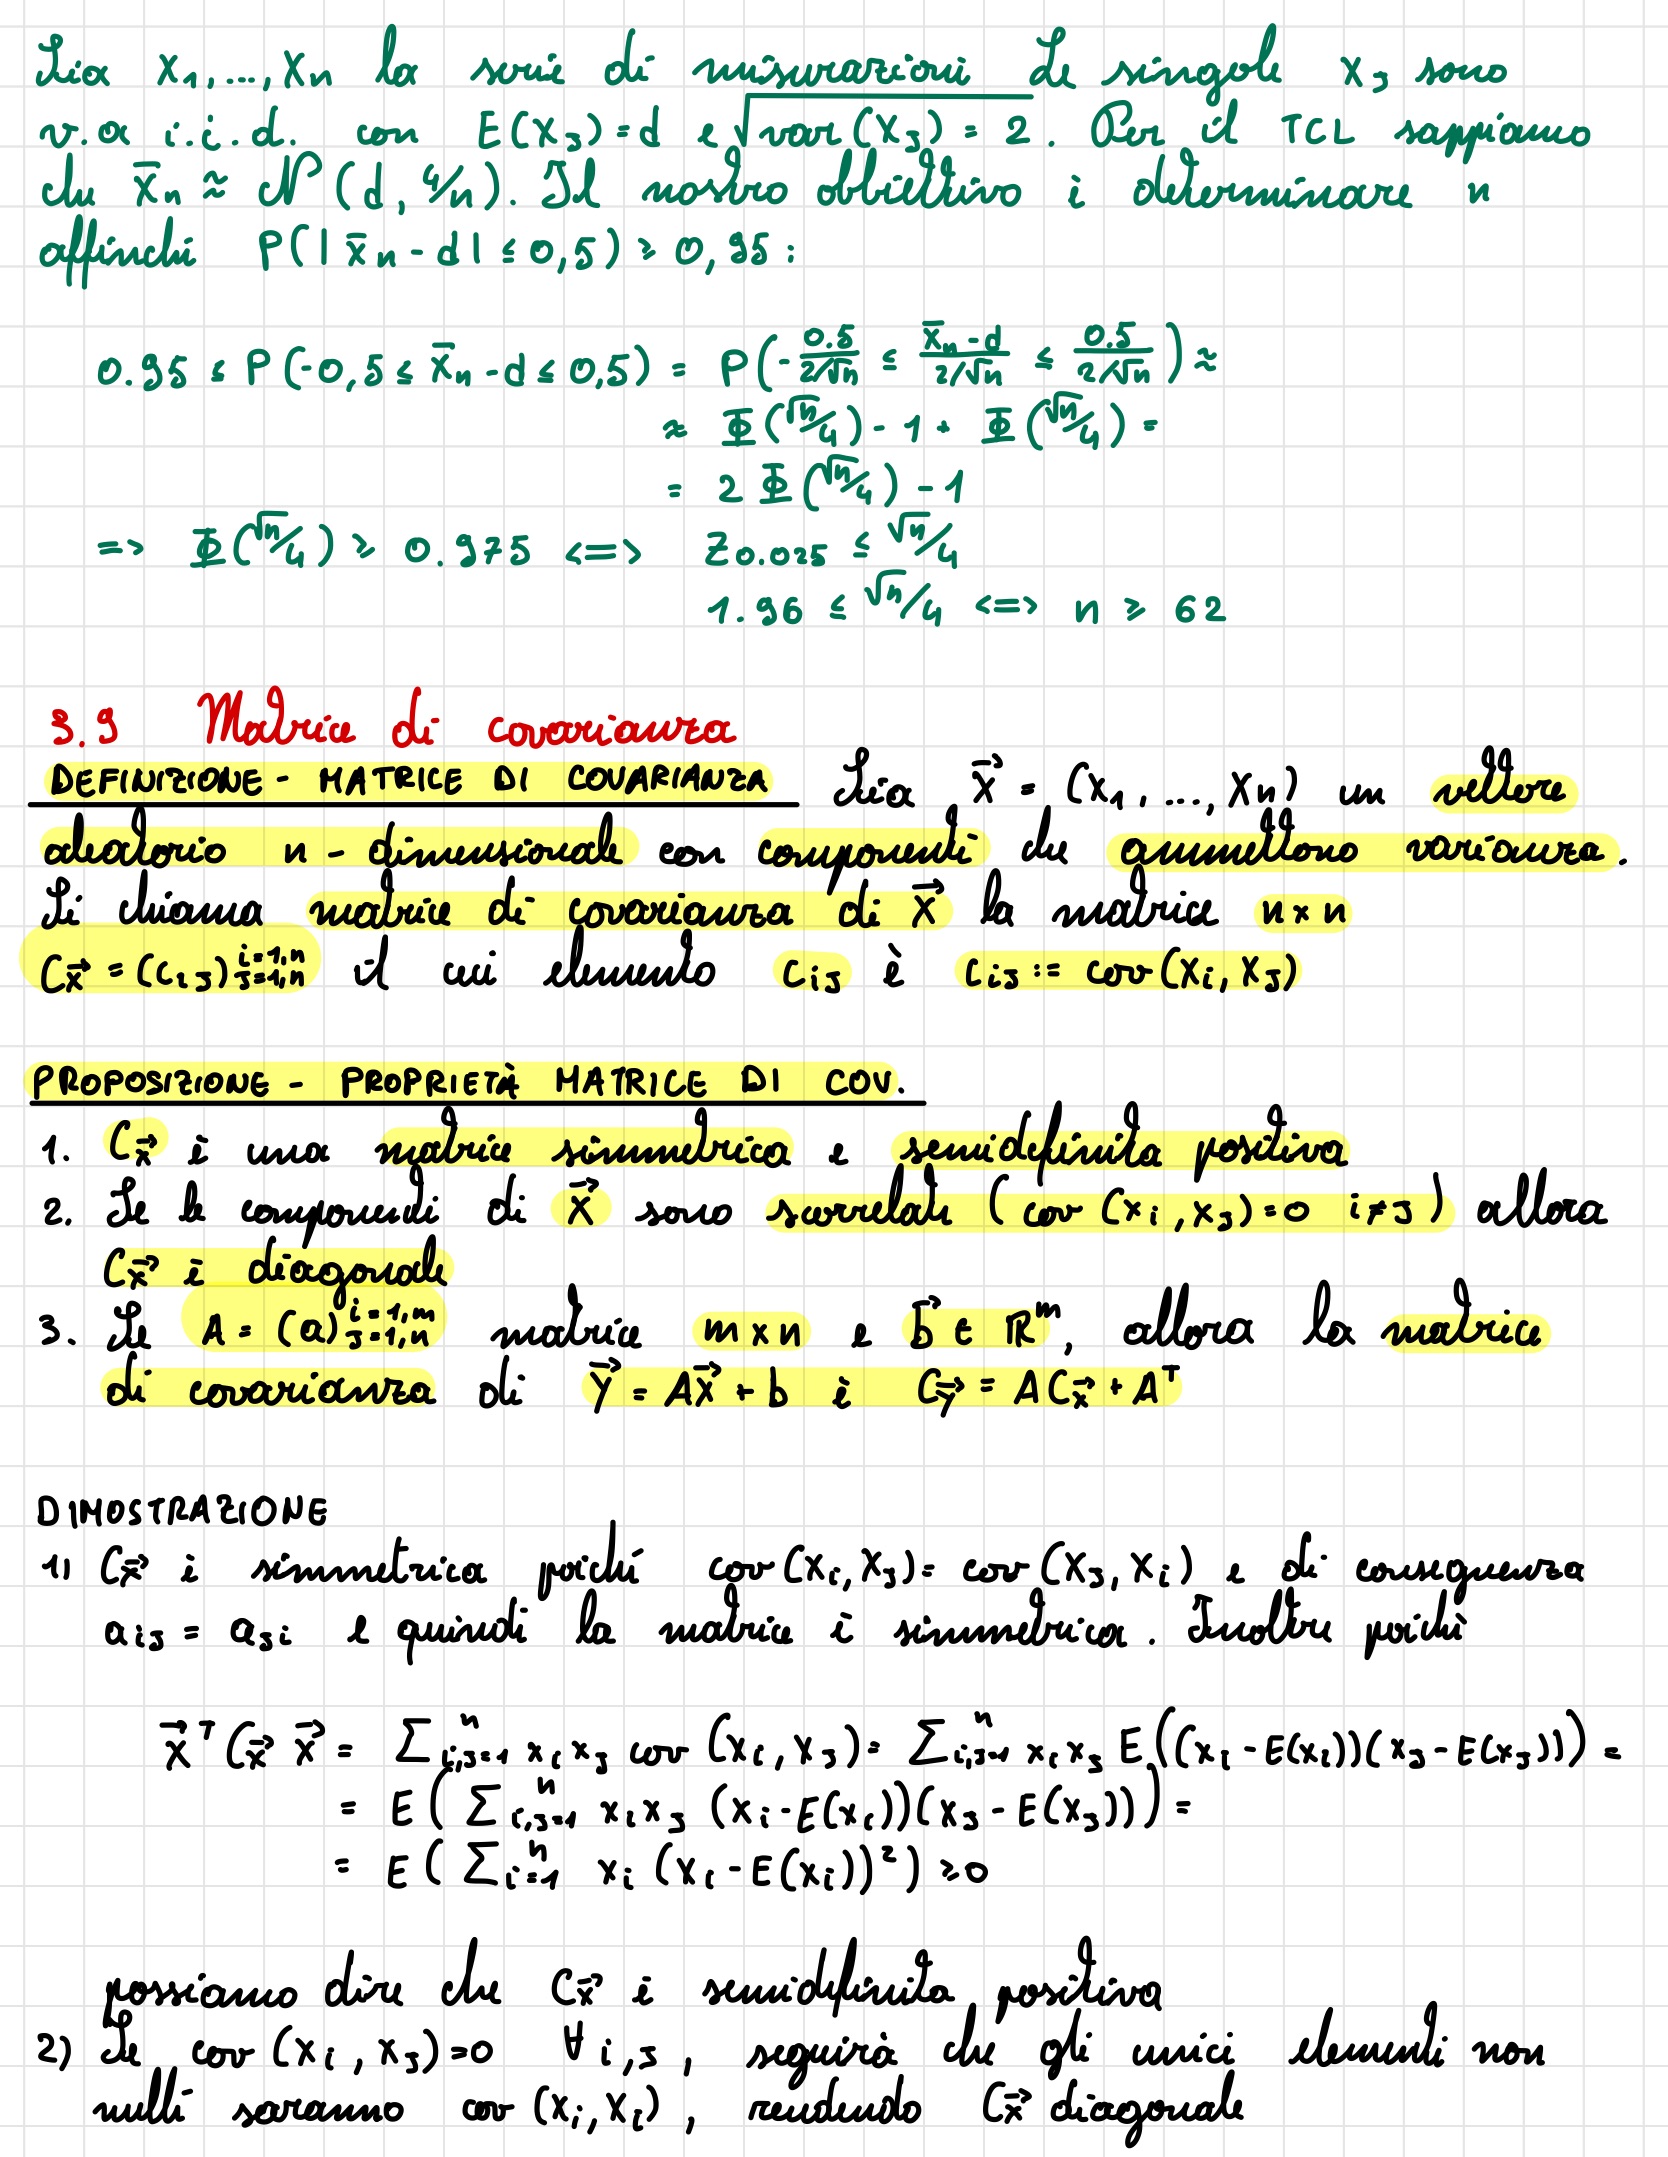 Sia X₁, ..., Xn la serie di misurazioni Le singole Xj sono
v.a i.i.d. con E(Xj) = d e √var(Xj) = 2. Per il TCL sappiamo
che X̄n ≈ N(d, 4/n). Il nostro obbiettivo è determinare n
affinché P(|X̄n - d| ≤ 0,5) ≥ 0,95:
0.95 ≤ P(-0,5 ≤ X̄n - d ≤ 0,5) = P(-0.5/(2/√n) ≤ (X̄n - d)/(2/√n) ≤ 0.5/(2/√n)) ≈
≈ Φ(√n/4) - 1 + Φ(√n/4) =
= 2 Φ(√n/4) - 1
=> Φ(√n/4) ≥ 0.975 <=> Z0.025 ≤ √n/4
1.96 ≤ √n/4 <=> n ≥ 62
3.9 Matrice di covarianza
DEFINIZIONE - MATRICE DI COVARIANZA Sia X⃗ = (X₁, ..., Xn) un vettore
aleatorio n - dimensionale con componenti che ammettono varianza.
Si chiama matrice di covarianza di X⃗ la matrice n x n
Cx⃗ = (cij) i=1,n j=1,n il cui elemento cij è cij := cov(Xi, Xj)
PROPOSIZIONE - PROPRIETÀ MATRICE DI COV.
1. Cx⃗ è una matrice simmetrica e semidefinita positiva
2. Se le componenti di X⃗ sono scorrelate (cov(Xi, Xj)=0 i≠j) allora
Cx⃗ è diagonale
3. Se A = (a) i=1,m j=1,n matrice m x n e b⃗ ∈ ℝᵐ, allora la matrice
di covarianza di Y⃗ = AX⃗ + b è CY⃗ = A Cx⃗ + Aᵀ
DIMOSTRAZIONE
1) Cx⃗ è simmetrica poiché cov(Xi, Xj) = cov(Xj, Xi) e di conseguenza
aij = aji e quindi la matrice è simmetrica. Inoltre poiché
x⃗ᵀ Cx⃗ x⃗ = Σⁿi,j=1 xi xj cov(Xi, Xj) = Σⁿi,j=1 xi xj E((Xi - E(Xi))(Xj - E(Xj))) =
= E(Σⁿi,j=1 xi xj (Xi - E(Xi))(Xj - E(Xj))) =
= E(Σⁿi=1 xi (Xi - E(Xi))²) ≥ 0
possiamo dire che Cx⃗ è semidefinita positiva
2) Se cov(Xi, Xj)=0 ∀ i,j, seguirà che gli unici elementi non
nulli saranno cov(Xi, Xi), rendendo Cx⃗ diagonale